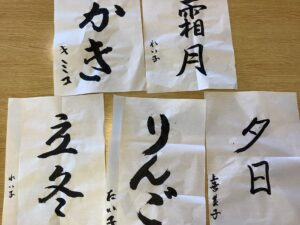 かき
キミ子
霜月
れい子
立冬
れい子
りんご
夕日
喜美子